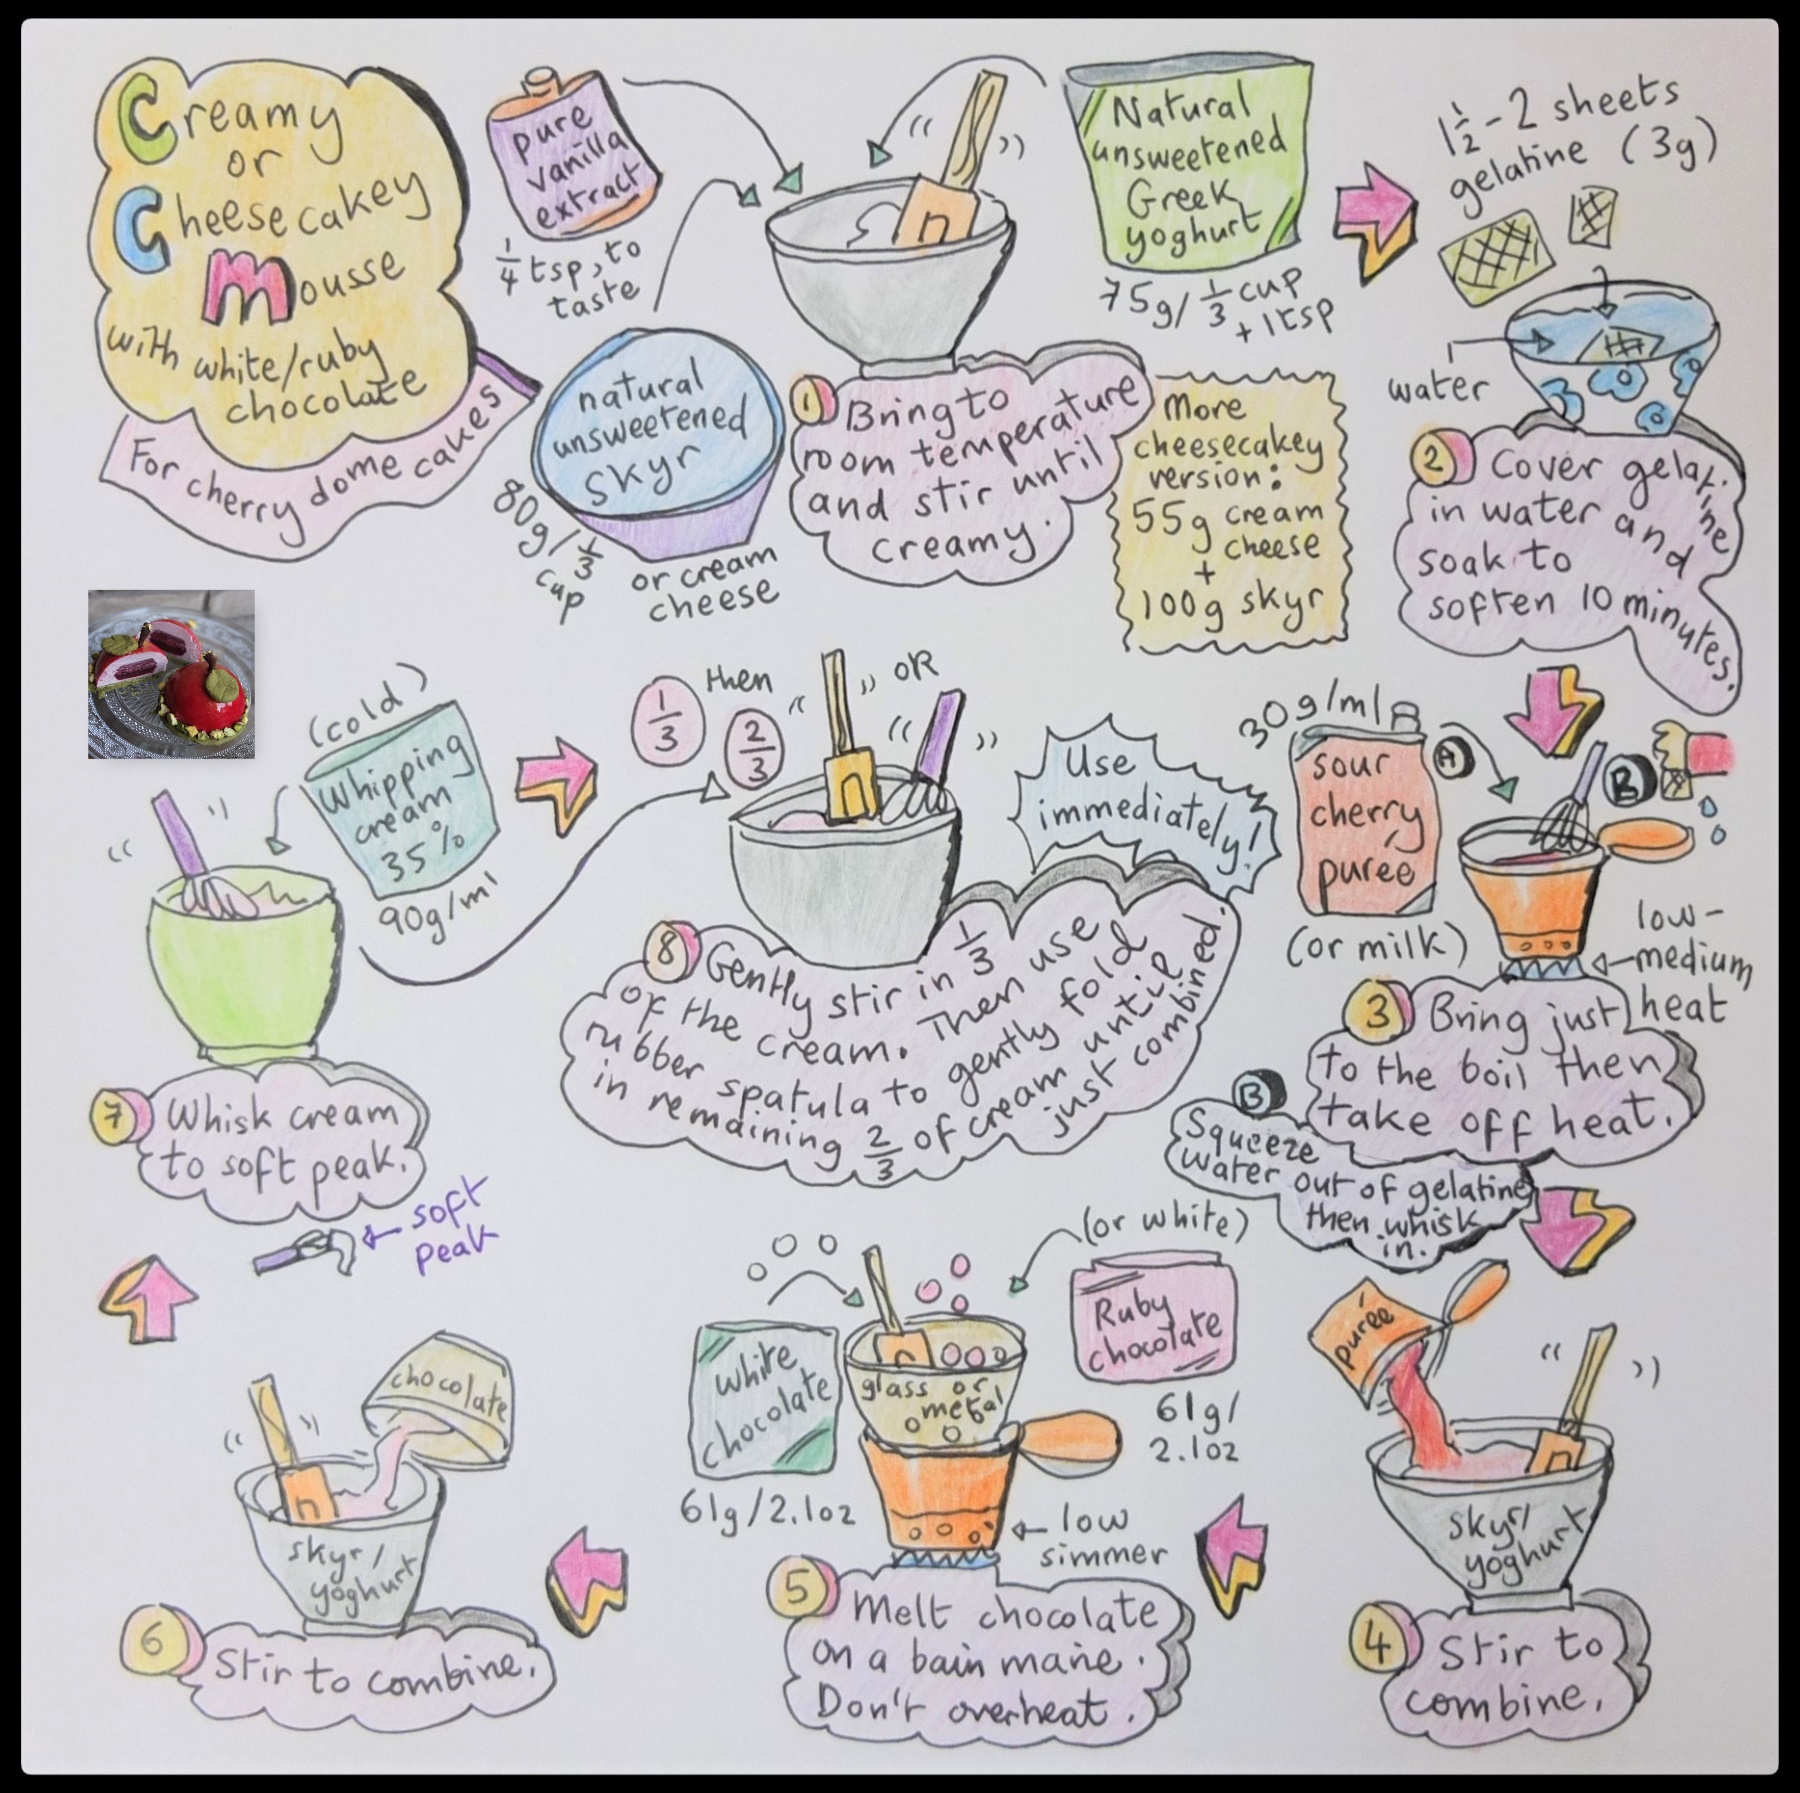 Creamy
or
Cheesecakey
Mousse
with white/ruby
chocolate
For cherry dome cakes
pure
vanilla
extract
1/4 tsp, to
taste
natural
unsweetened
skyr
80g/1/3
cup
or cream
cheese
Natural
unsweetened
Greek
yoghurt
75g/1/3 cup
+ 1 tsp
1 Bring to
room temperature
and stir until
creamy.
More
cheesecakey
version:
55g cream
cheese
+
100g skyr
1 1/2 - 2 sheets
gelatine (3g)
water
2 Cover gelatine
in water and
soak to
soften 10 minutes.
30g/ml
sour
cherry
purée
(or milk)
A
B
low-
medium
heat
3 Bring just
to the boil then
take off heat.
B
Squeeze
water out of gelatine
then whisk
in.
purée
skyr/
yoghurt
4 Stir to
combine.
(or white)
Ruby
chocolate
61g/
2.1oz
white
chocolate
61g/2.1oz
glass or
metal
low
simmer
5 Melt chocolate
on a bain marie.
Don't overheat.
chocolate
skyr/
yoghurt
6 Stir to combine.
(cold)
Whipping
cream
35%
90g/ml
7 Whisk cream
to soft peak.
soft
peak
1/3 then
2/3
OR
Use
immediately!
8 Gently stir in 1/3
of the cream. Then use
rubber spatula to gently fold
in remaining 2/3 of cream until
just combined.